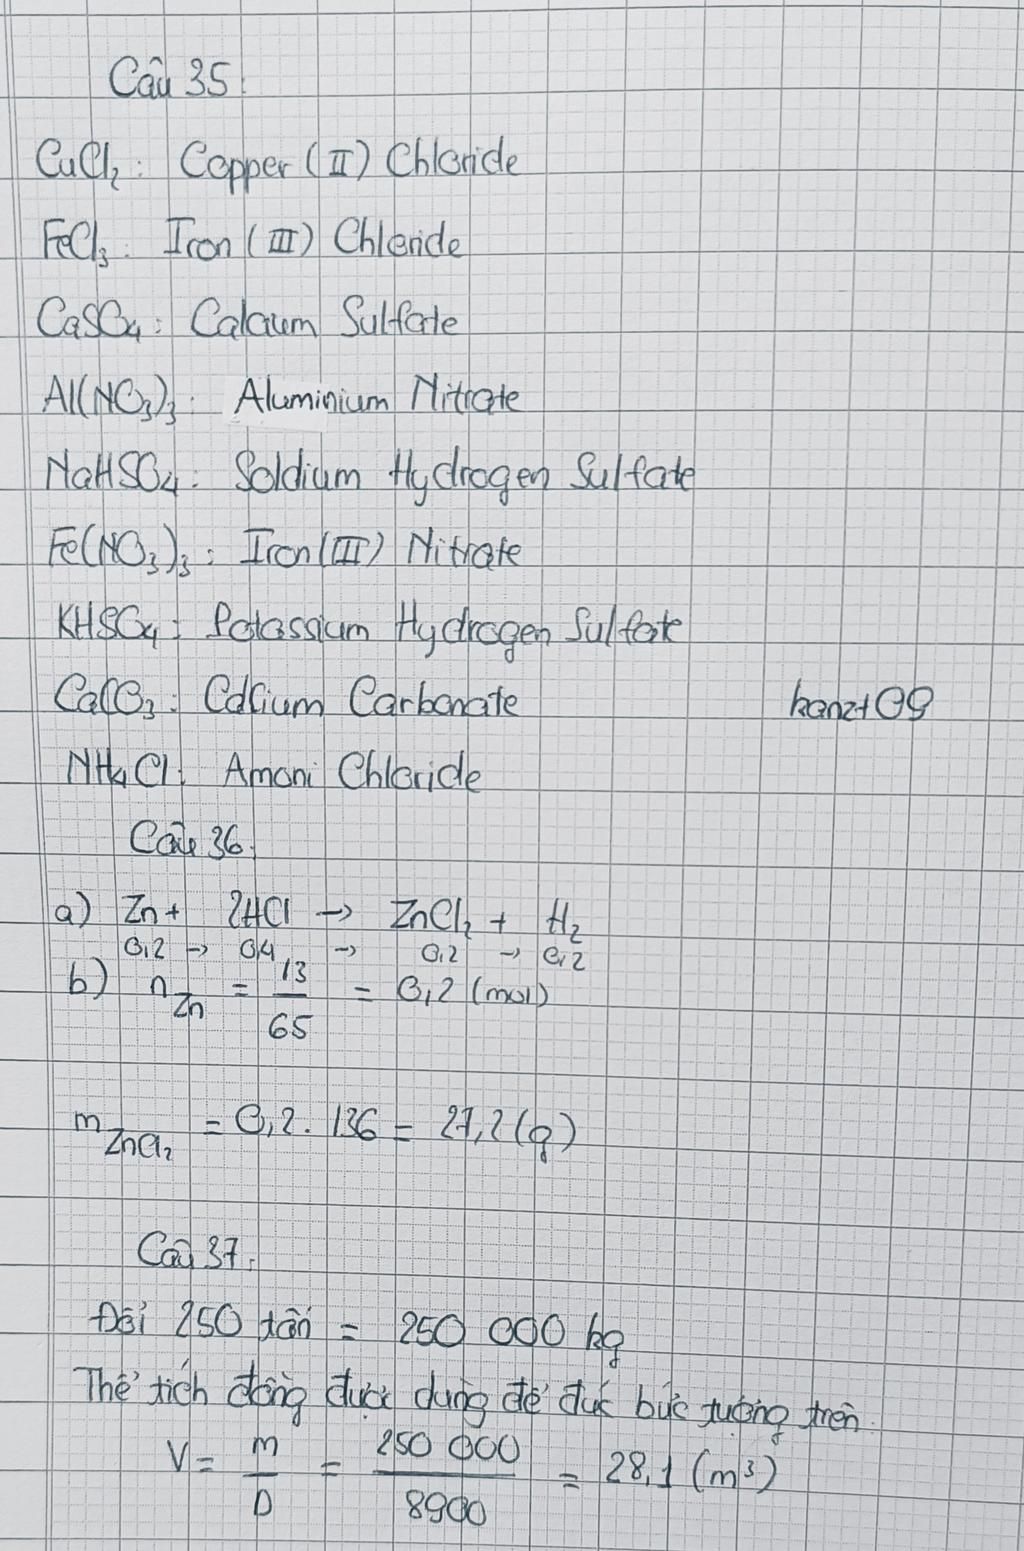 Câu 35:
CuCl₂: Copper (II) Chloride
FeCl₃: Iron (III) Chloride
CaSO₄: Calcium Sulfate
Al(NO₃)₃: Aluminium Nitrate
NaHSO₄: Soldium Hydrogen Sulfate
Fe(NO₃)₃: Iron (III) Nitrate
KHSO₄: Potassium Hydrogen Sulfate
CaCO₃: Calcium Carbonate kanzt09
NH₄Cl: Amoni Chloride
Câu 36:
a) Zn + 2HCl → ZnCl₂ + H₂
0,2 → 0,4 → 0,2 → 0,2
b) n Zn = 13/65 = 0,2 (mol)
m ZnCl₂ = 0,2 . 136 = 27,2 (g)
Câu 37:
Đổi 250 tấn = 250 000 kg
Thể tích đồng được dùng để đúc bức tượng trên:
V = m/D = 250 000/8900 = 28,1 (m³)